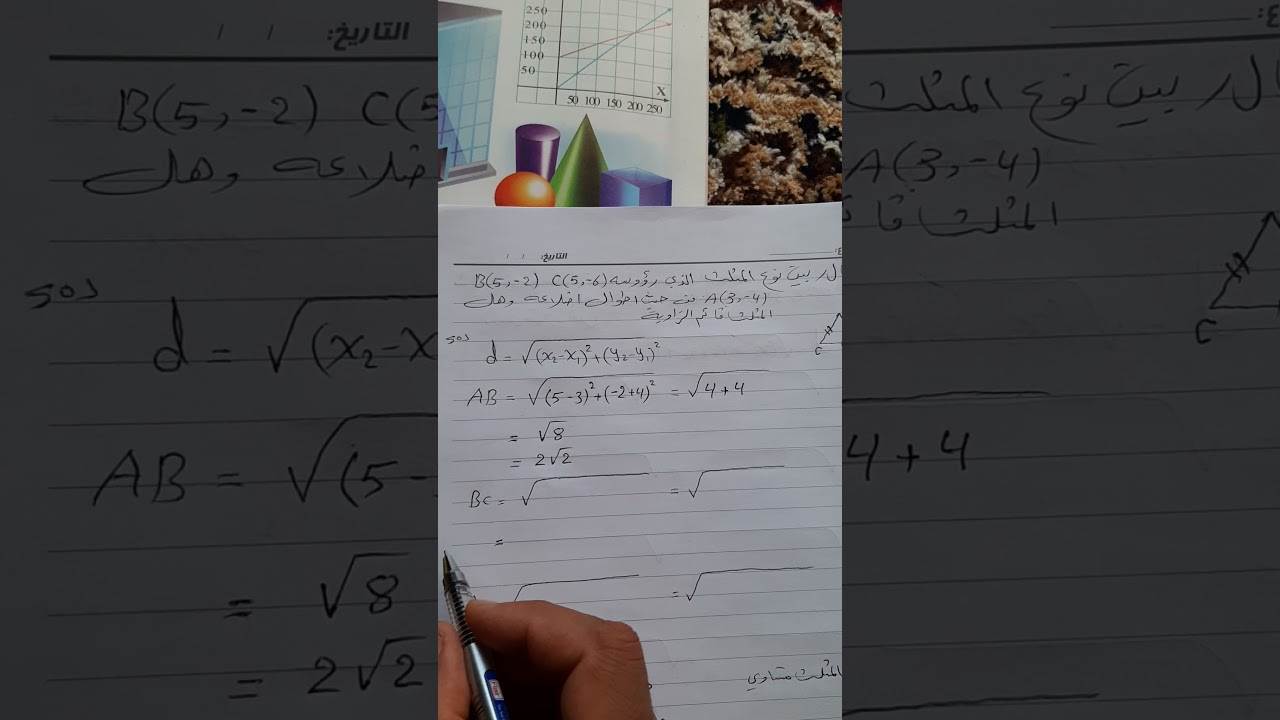 250
200
150
100
50
X
50 100 150 200 250
التاريخ: / /
بين نوع المثلث الذي رؤوسه B(5,-2) C(5,-6)
A(3,-4) من حيث اطوال اضلاعه وهل
المثلث قائم الزاوية
d = √(x₂-x₁)²+(y₂-y₁)²
C
AB = √(5-3)²+(-2+4)² = √4+4
= √8
= 2√2
BC = √ = √
=
√ = √
المثلث متساوي